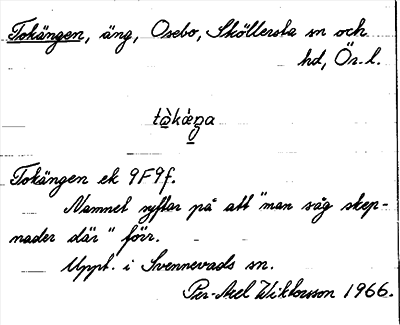 Tokängen, äng, Osebo, Sköllersta sn och
hd, Ör. l.
tòkä́ŋa
Tokängen ek 9F9f.
Namnet syftar på att "man såg skep-
nader där" förr.
Uppt. i Svennevads sn.
Per-Axel Wiktorsson 1966.